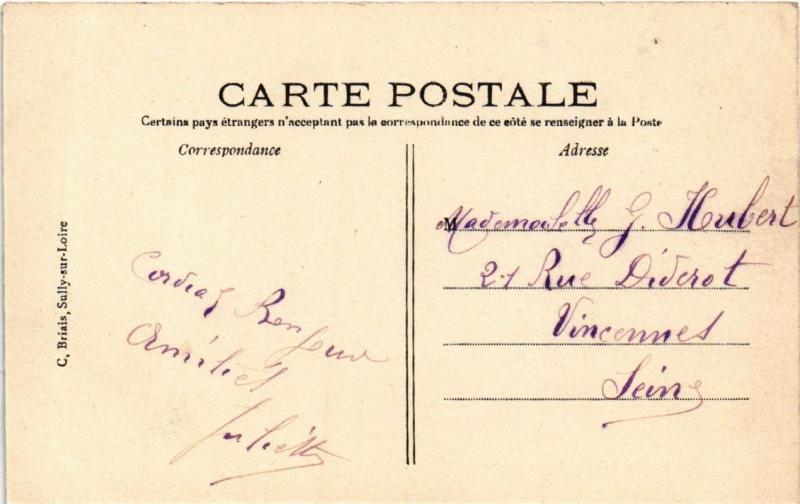 CARTE POSTALE
Certains pays étrangers n'acceptant pas la correspondance de ce côté se renseigner à la Poste
Correspondance
Adresse
C. Briais, Sully-sur-Loire
Cordial Bonjour
Amitiés
Juliette
M
Mademoiselle G. Hubert
21 Rue Diderot
Vincennes
Seine